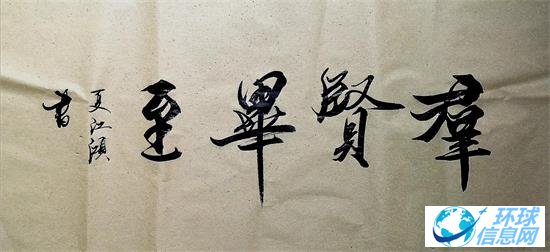 羣賢畢至
夏江
書
环球
信息网